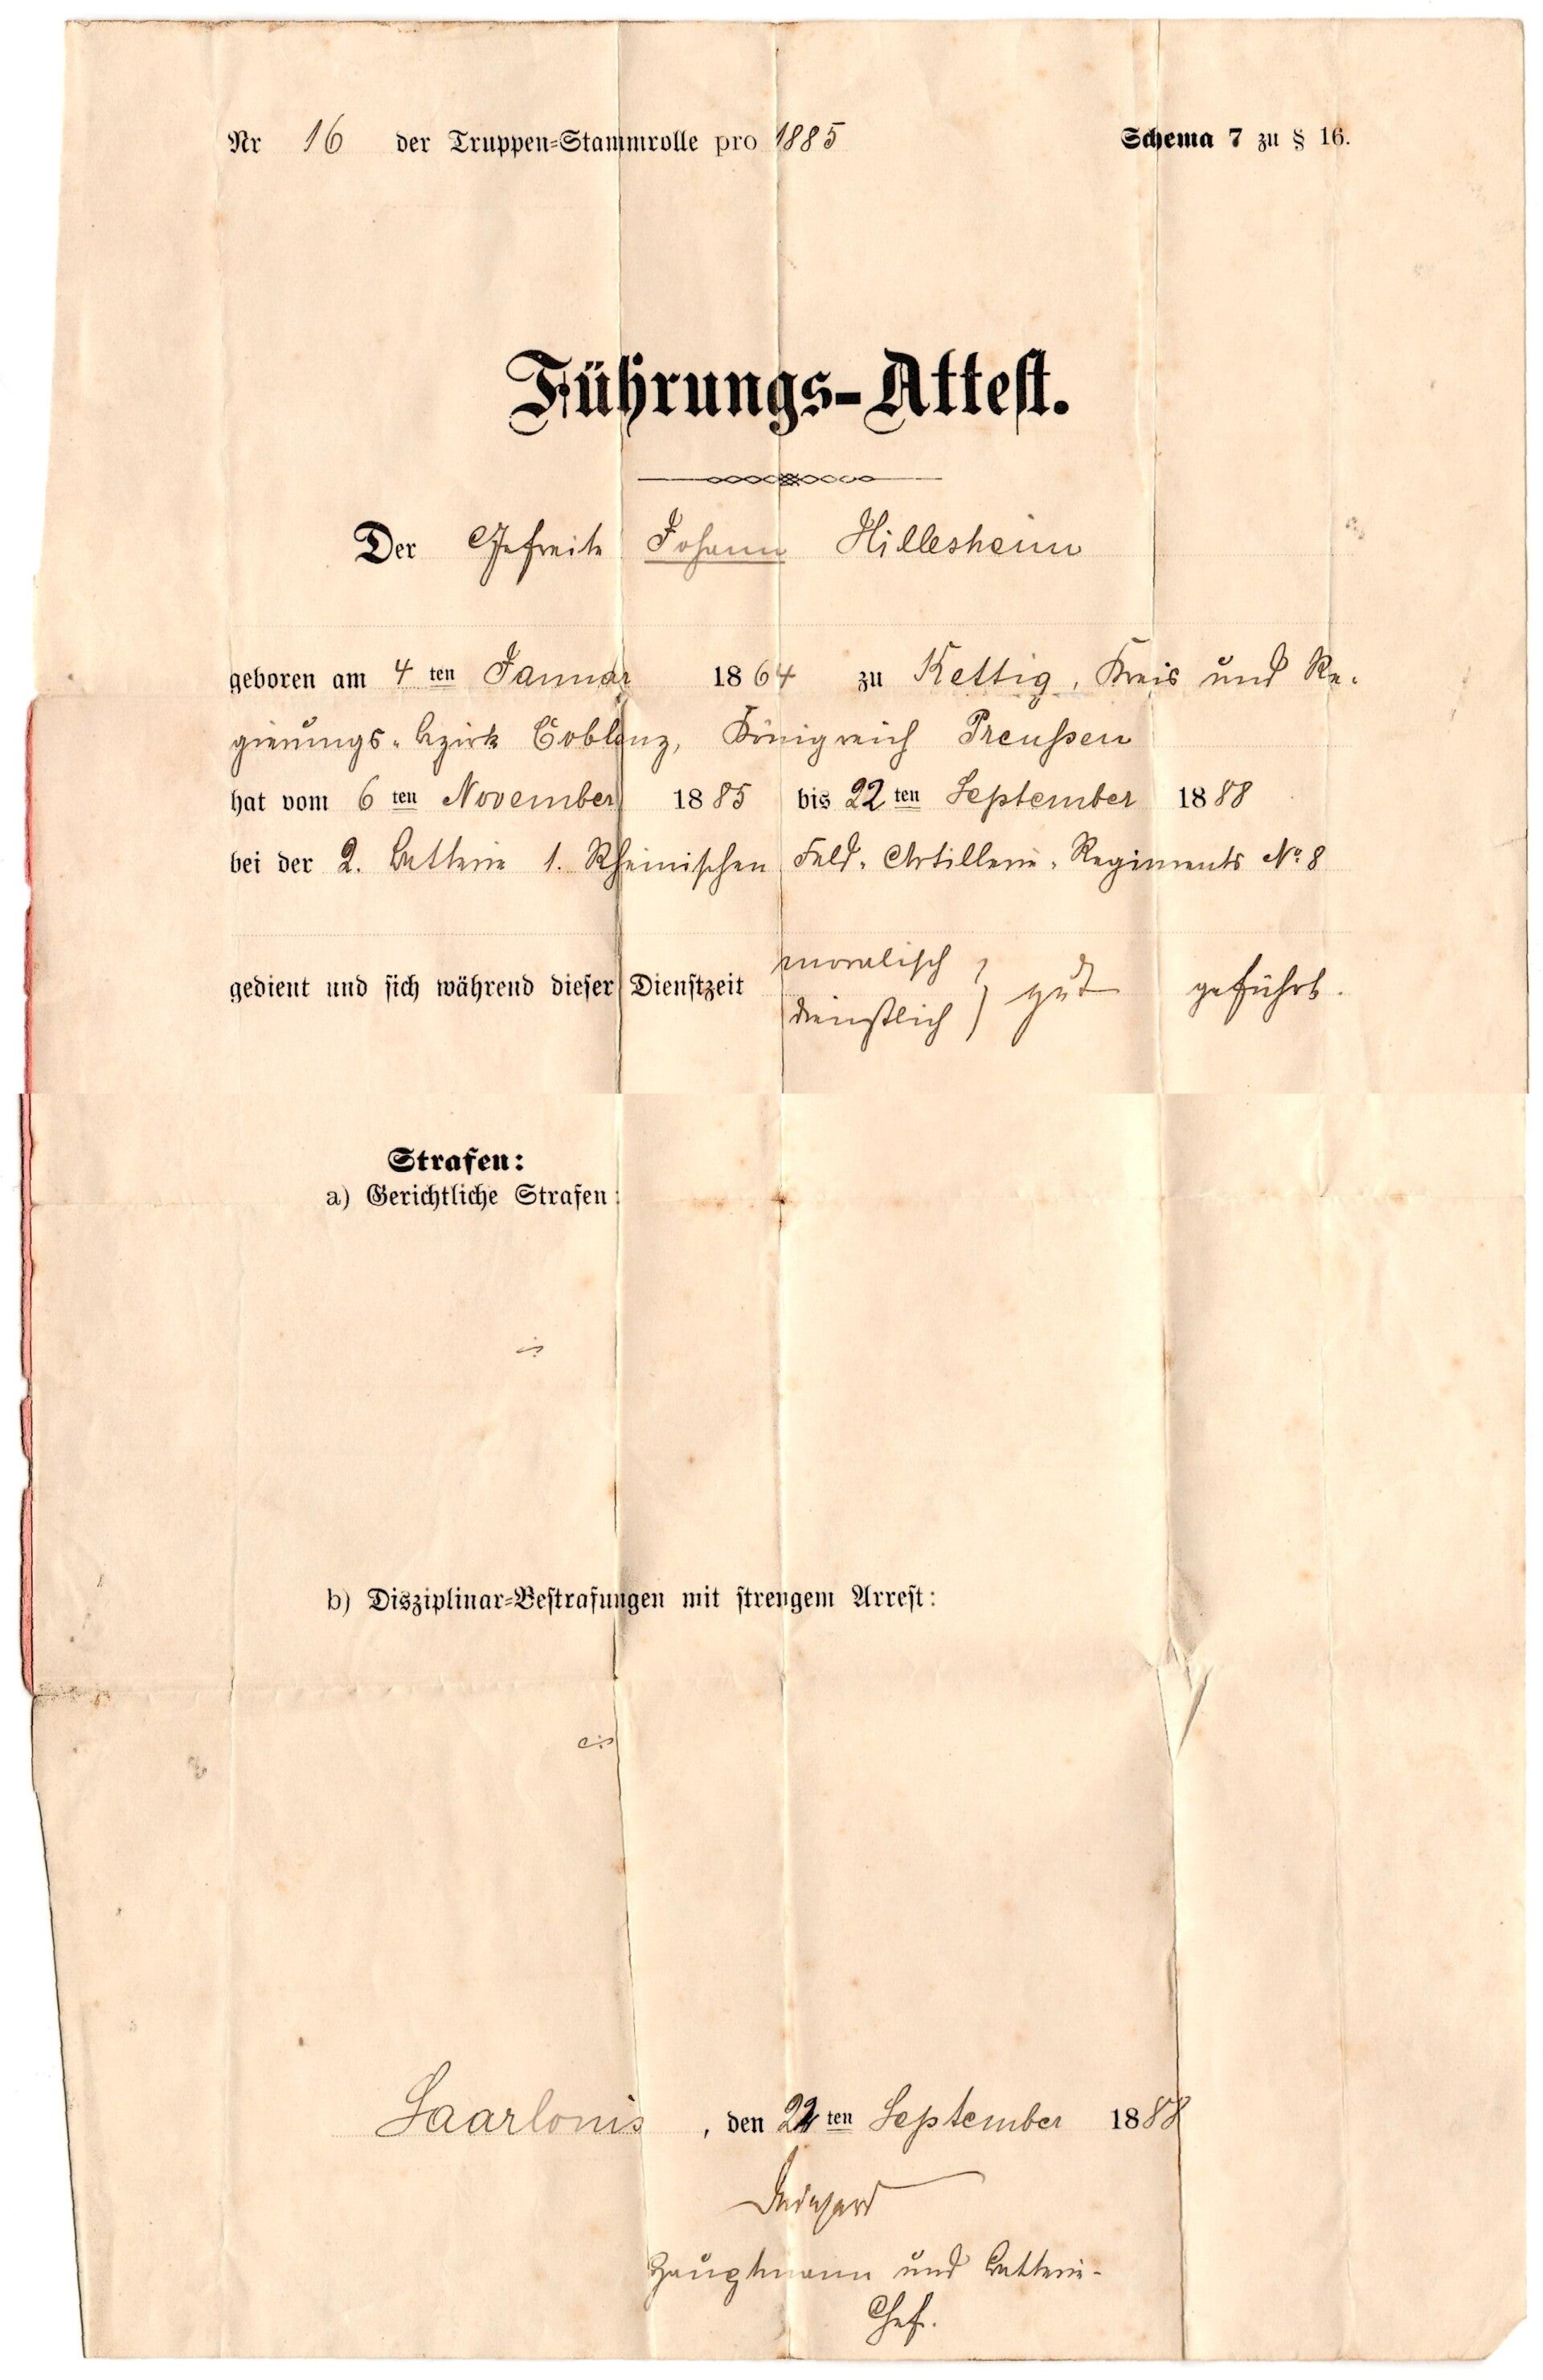 Nr 16 der Truppen=Stammrolle pro 1885
Schema 7 zu § 16.
Führungs-Attest.
Der Gefreite Johann Hillesheim
geboren am 4 ten Januar 1864 zu Kettig, Kreis und Re-
gierungs-bezirk Coblenz, Königreich Preußen
hat vom 6 ten November 1885 bis 22 ten September 1888
bei der 2. Batterie 1. Rheinischen Feld-Artillerie-Regiments No. 8
gedient und sich während dieser Dienstzeit moralisch
dienstlich } gut geführt.
Strafen:
a) Gerichtliche Strafen:
b) Disziplinar=Bestrafungen mit strengem Arrest:
Saarlouis, den 22 ten September 1888
Hauptmann und Batterie-
Chef.